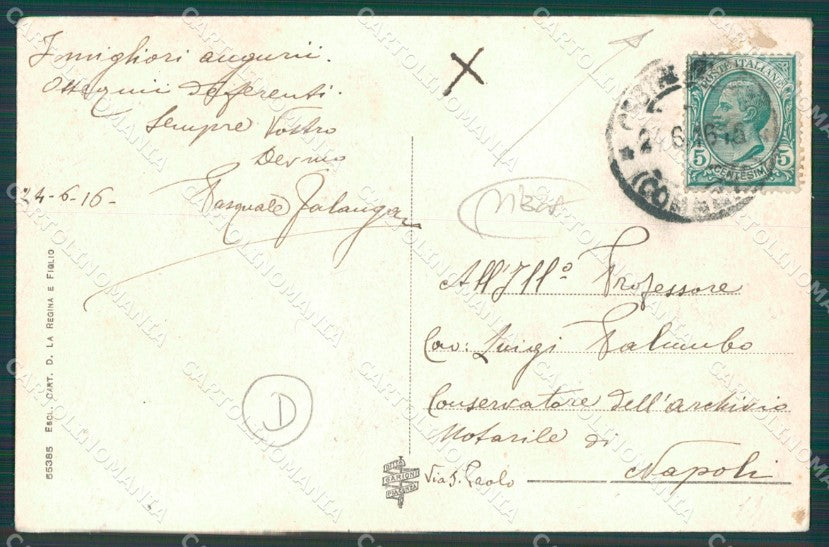 I migliori augurii.
Ossequii deferenti.
Sempre Vostro
Dev.mo
24-6-16-
Pasquale Falanga
55385 ESCL. CART. D. LA REGINA E FIGLIO
D
X
POSTE ITALIANE
5 5
CENTESIMI
24.6.16
All'Ill.o Professore
Cav: Luigi Palumbo
Conservatore dell'archivio
Notarile di
Napoli
Via S. Paolo
DITTA
GARIONI
PIACENZA
CARTOLINOMANIA